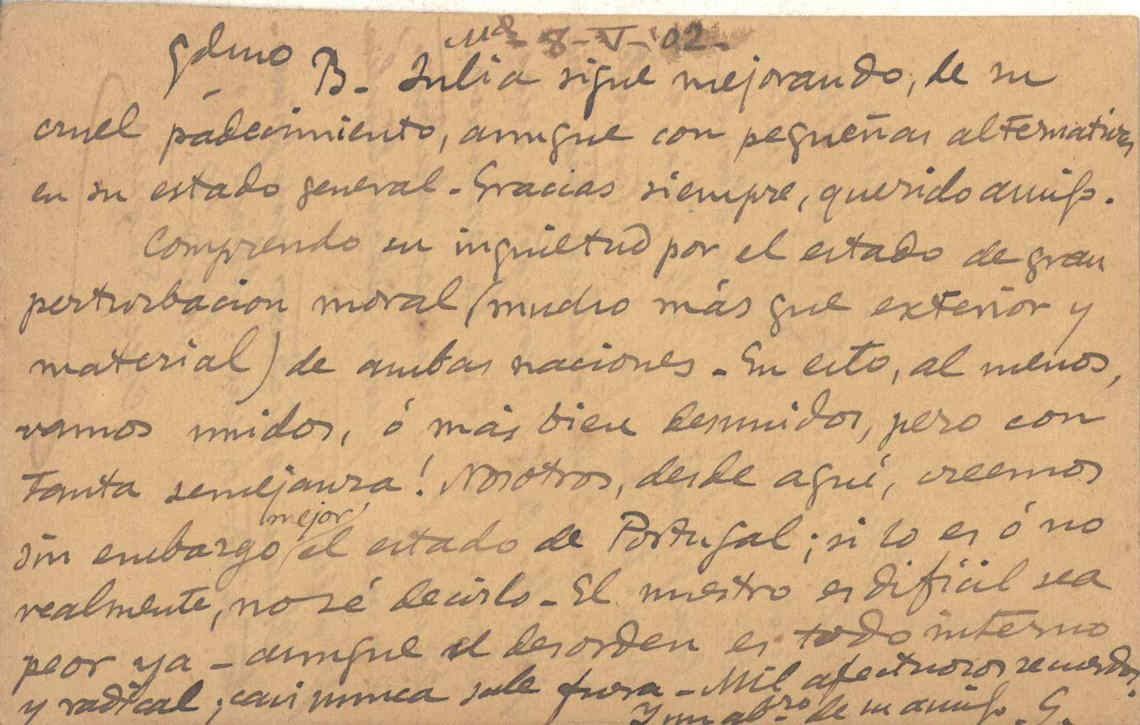 Md - 8-V-02.
B. Julia sigue mejorando, de su
cruel padecimiento, aunque con pequeñas alternativas
en su estado general - Gracias siempre, querido amigo.
Comprendo su inquietud por el estado de gran
perturbacion moral (mucho más que exterior y
material) de ambas naciones - En esto, al menos,
vamos unidos, ó más bien desunidos, pero con
tanta semejanza! Nosotros, desde aquí, creemos
mejor
sin embargo el estado de Portugal; si lo es ó no
realmente, no sé decirlo - El nuestro es dificil sea
peor ya - aunque el desorden es todo interno
y radical; casi nunca sale fuera - Mil afectuosos recuerdos,
Y un abzo de su amigo G